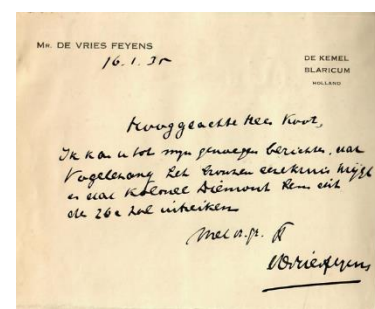 Mr. DE VRIES FEYENS
16.1.35
DE KEMEL
BLARICUM
HOLLAND
Hooggeachte Heer Koot,
Ik kan u tot mijn genoegen berichten, dat
Vogelenzang het bronzen eerekruis krijgt
en dat Kolonel Diemont hem dit
de 26e zal uitreiken
Met vr. gr.
de Vries Feyens